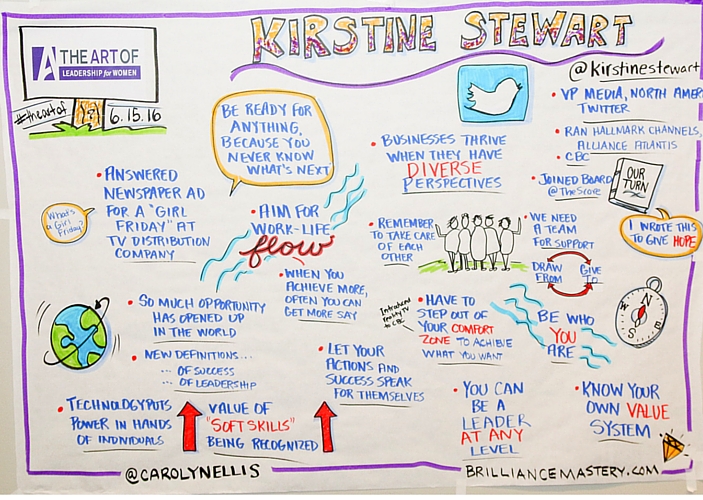 KIRSTINE STEWART
A THE ART OF
LEADERSHIP for WOMEN
#theartof
6.15.16
@kirstinestewart
• VP MEDIA, NORTH AMER
TWITTER
• RAN HALLMARK CHANNELS,
ALLIANCE ATLANTIS
• CBC
• JOINED BOARD
@TheScore
OUR
TURN
I WROTE THIS
TO GIVE HOPE
BE READY FOR
ANYTHING,
BECAUSE YOU
NEVER KNOW
WHAT'S NEXT
• BUSINESSES THRIVE
WHEN THEY HAVE
DIVERSE
PERSPECTIVES
• ANSWERED
NEWSPAPER AD
FOR A "GIRL
FRIDAY" AT
TV DISTRIBUTION
COMPANY
What's
a Girl
Friday?
• AIM FOR
WORK-LIFE
flow
• WHEN YOU
ACHIEVE MORE,
OFTEN YOU CAN
GET MORE SAY
• REMEMBER
TO TAKE CARE
OF EACH
OTHER
• WE NEED
A TEAM
FOR SUPPORT
DRAW
FROM
GIVE
TO
• SO MUCH OPPORTUNITY
HAS OPENED UP
IN THE WORLD
• NEW DEFINITIONS...
... OF SUCCESS
... OF LEADERSHIP
Introduced
reality TV
to CBC
• HAVE TO
STEP OUT OF
YOUR COMFORT
ZONE TO ACHIEVE
WHAT YOU WANT
BE WHO
YOU
ARE
N
E
S
W
• LET YOUR
ACTIONS AND
SUCCESS SPEAK
FOR THEMSELVES
• TECHNOLOGY PUTS
POWER IN HANDS
OF INDIVIDUALS
VALUE OF
"SOFT SKILLS"
BEING RECOGNIZED
• YOU CAN
BE A
LEADER
AT ANY
LEVEL
• KNOW YOUR
OWN VALUE
SYSTEM
@CAROLYNELLIS
BRILLIANCEMASTERY.COM